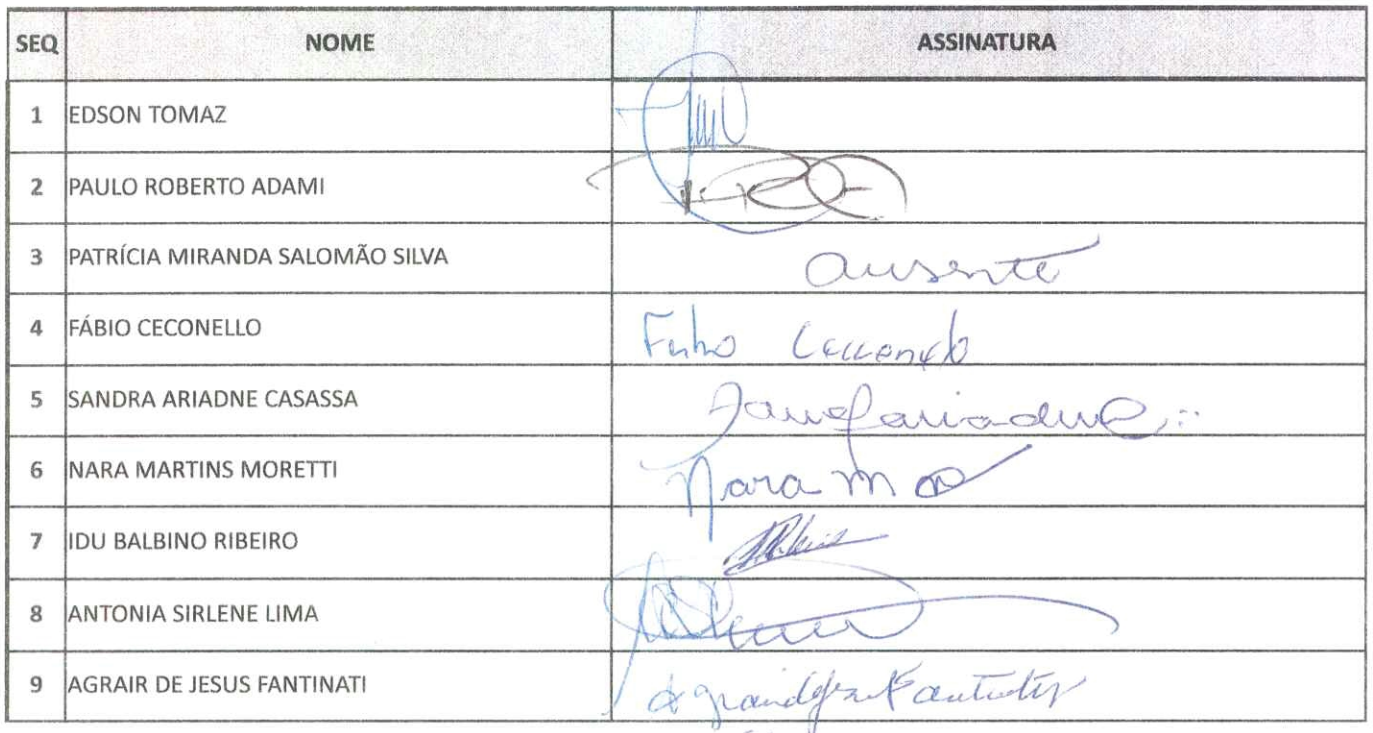 SEQ NOME ASSINATURA
1 EDSON TOMAZ
2 PAULO ROBERTO ADAMI
3 PATRÍCIA MIRANDA SALOMÃO SILVA ausente
4 FÁBIO CECONELLO
5 SANDRA ARIADNE CASASSA
6 NARA MARTINS MORETTI Nara
7 IDU BALBINO RIBEIRO
8 ANTONIA SIRLENE LIMA
9 AGRAIR DE JESUS FANTINATI